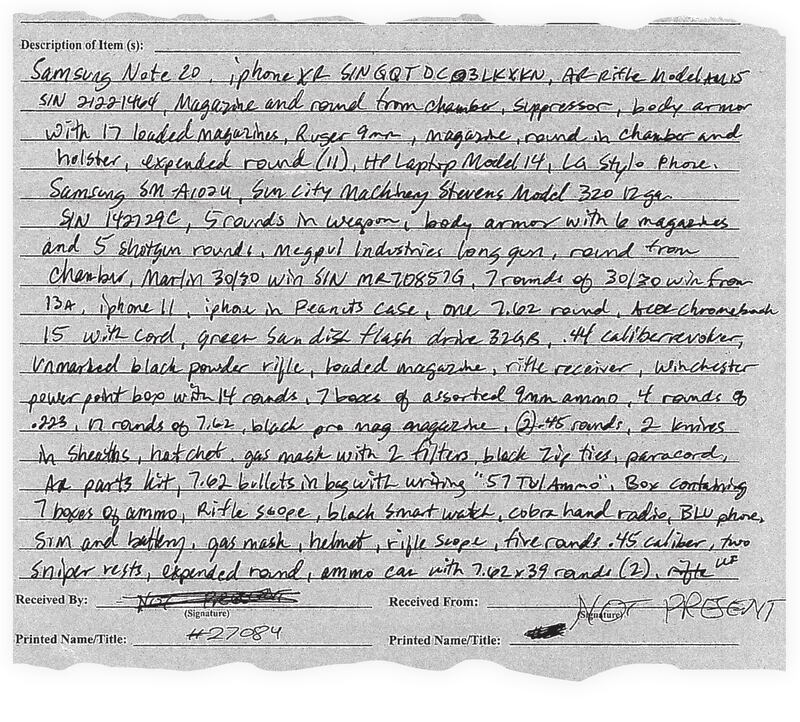 Description of Item (s):
Samsung Note 20, iphone XR S/N GQTDC03LKXKN, AR Rifle Model AM15
S/N 21221464, Magazine and round from chamber, suppressor, body armor
with 17 loaded magazines, Ruger 9mm, magazine, round in chamber and
holster, expended round (11), HP Laptop Model 14, LG Stylo Phone.
Samsung SM-A102U, Sun City Machinery Stevens Model 320 12ga.
S/N 142729C, 5 rounds in weapon, body armor with 6 magazines
and 5 shotgun rounds, Megpul Industries long gun, round from
chamber, Marlin 30/30 win S/N MR70857G, 7 rounds of 30/30 win from
13A, iphone 11, iphone in Peanuts case, one 7.62 round, Acer chromebook
15 with cord, green Sandisk flash drive 32GB, .44 caliber revolver,
unmarked black powder rifle, loaded magazine, rifle receiver, Winchester
power point box with 14 rounds, 7 boxes of assorted 9mm ammo, 4 rounds of
.223, 17 rounds of 7.62, black pro mag magazine, (2) .45 rounds, 2 knives
in sheaths, hatchet, gas mask with 2 filters, black zip ties, paracord,
AR parts kit, 7.62 bullets in bag with writing "57 TUl Ammo", Box containing
7 boxes of ammo, Rifle scope, black smart watch, cobra hand radio, BLU phone,
Sim and battery, gas mask, helmet, rifle scope, five rounds .45 caliber, two
sniper rests, expended round, ammo can with 7.62x39 rounds (2), rifle
Received By: NOT PRESENT Received From: NOT PRESENT
(Signature) (Signature)
Printed Name/Title: #27084 Printed Name/Title: